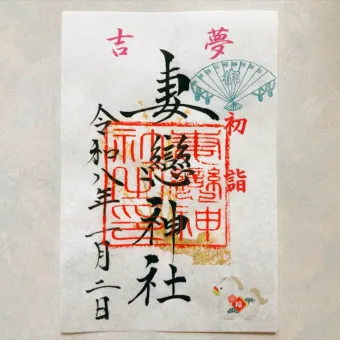 吉夢
初詣
妻戀神社
令和八年一月二日